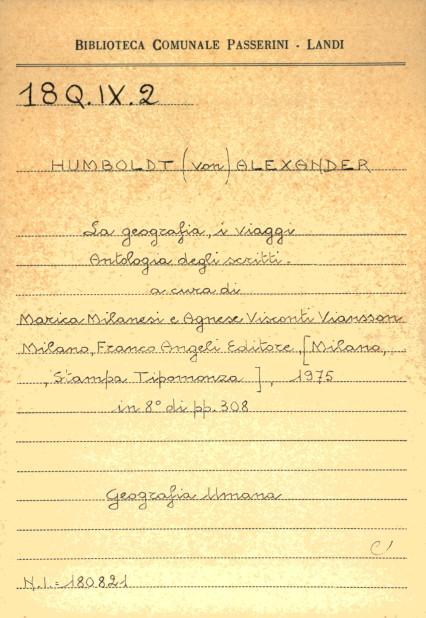 BIBLIOTECA COMUNALE PASSERINI - LANDI
18Q.IX.2
HUMBOLDT (von) ALEXANDER
La geografia, i viaggi
Antologia degli scritti.
a cura di
Marica Milanesi e Agnese Visconti Viansson
Milano, Franco Angeli Editore, [Milano,
, Stampa Tipomonza ], 1975
in 8° di pp. 308
Geografia Umana
C/
N.I.= 180821